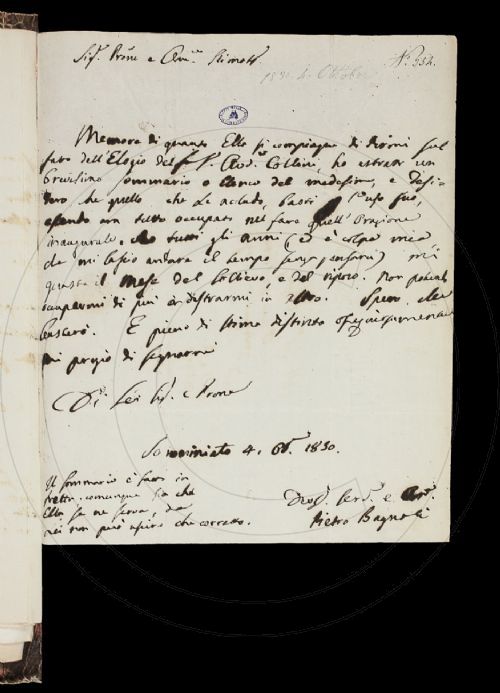 Sig.r Prõne e Am.co Stimat.mo
N.o 334.
1830. 4. Ottobre
Memore di quanto Ella si compiacque di dirmi sul
fatto dell'Elogio del P. Collini, ho estratto un
brevissimo sommario o elenco del medesimo, e desi-
dero che quello che Le accludo, basti l'uso suo,
essendo ora tutto occupato nel fare quell'Orazione
inaugurale, che tutti gli anni (ed è colpa mia
che mi lascio andare il tempo senza pensarvi) mi
guasta il mese del sollievo, e del riposo. Non potendo
occuparmi di più o distrarmi in altro. Spero che
basterà. E pieno di stima distinta ossequiosamente
mi pregio di segnarmi
Di Lei Sig.r e Prone
Samminiato 4. Ott.e 1830.
Il sommario è fatto in
fretta. comunque sia che
Ella se ne serva, da
Lei non può uscire che corretto.
Dev.o Serv.e e Am.o
Pietro Bagnoli